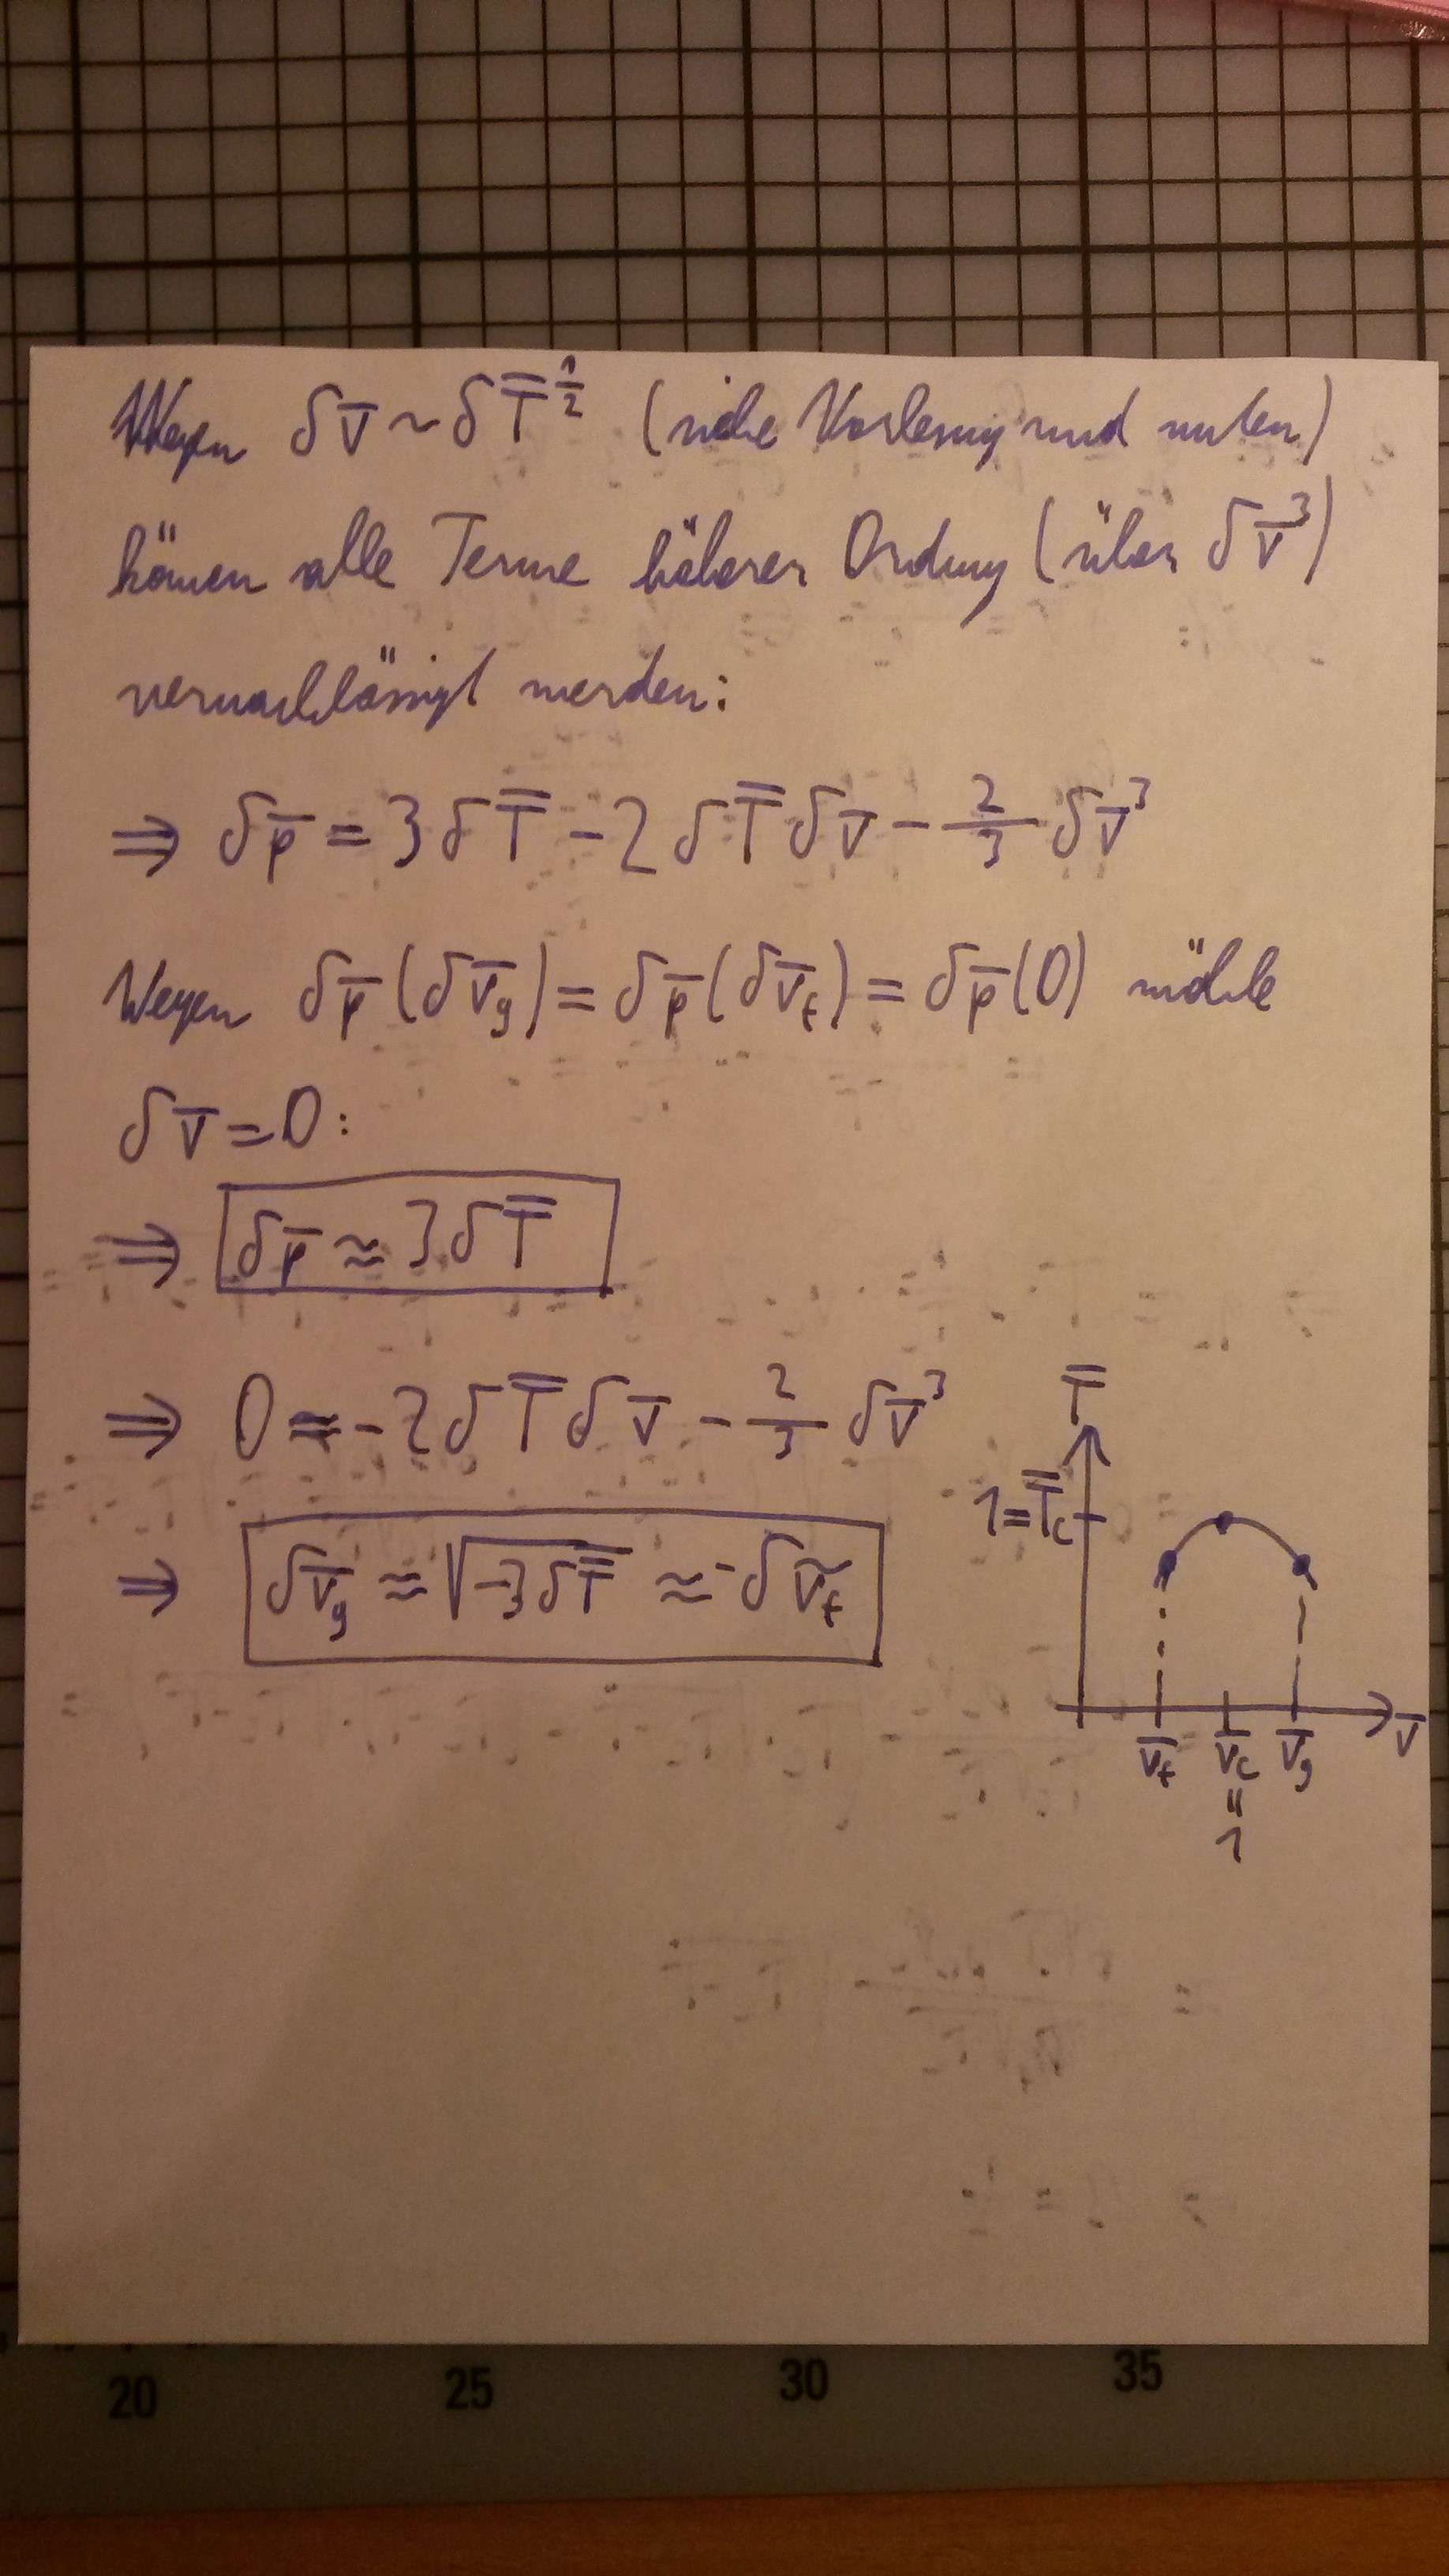 Wegen δv̄ ~ δT̿^½ (siehe Vorlesung und unten)
können alle Terme höherer Ordnung (über δv̄³)
vernachlässigt werden:
⇒ δp̄ = 3δT̿ - 2δT̿δv̄ - 2/3 δv̄³
Wegen δp̄(δv̄g) = δp̄(δv̄f) = δp̄(0) wähle
δv̄ = 0:
⇒ δp̄ ≈ 3δT̿
⇒ 0 ≈ -2δT̿δv̄ - 2/3 δv̄³
⇒ δv̄g ≈ √-3δT̿ ≈ -δṽf
T̿
1 = T̿c
v̄f v̄c v̄g v̄
=
1
20 25 30 35